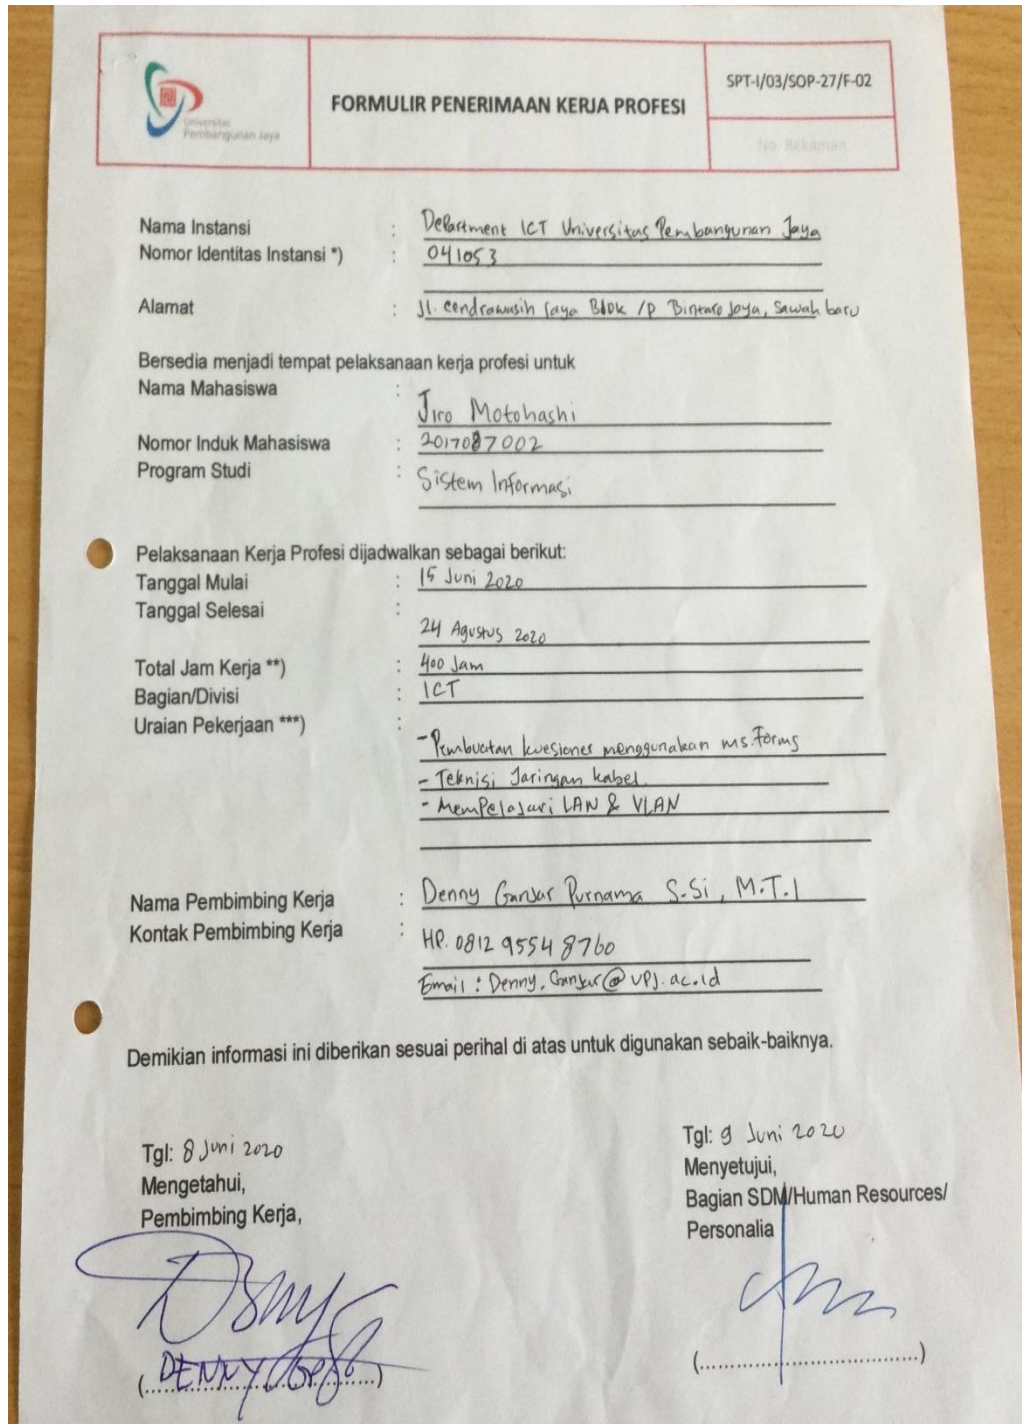 Universitas
Pembangunan Jaya
FORMULIR PENERIMAAN KERJA PROFESI
SPT-I/03/SOP-27/F-02
No. Rekaman
Nama Instansi : Department ICT Universitas Pembangunan Jaya
Nomor Identitas Instansi *) : 041053
Alamat : Jl. Cendrawasih Raya Blok /P Bintaro Jaya, Sawah baru
Bersedia menjadi tempat pelaksanaan kerja profesi untuk
Nama Mahasiswa : Jiro Motohashi
Nomor Induk Mahasiswa : 2017087002
Program Studi : Sistem Informasi
Pelaksanaan Kerja Profesi dijadwalkan sebagai berikut:
Tanggal Mulai : 15 Juni 2020
Tanggal Selesai : 24 Agustus 2020
Total Jam Kerja **) : 400 Jam
Bagian/Divisi : ICT
Uraian Pekerjaan ***) :
- Pembuatan kuesioner menggunakan ms.Forms
- Teknisi Jaringan kabel
- Mempelajari LAN & VLAN
Nama Pembimbing Kerja : Denny Ganjar Purnama S.Si, M.T.I
Kontak Pembimbing Kerja : HP. 0812 9554 8760
Email : Denny.Ganjar@upj.ac.id
Demikian informasi ini diberikan sesuai perihal di atas untuk digunakan sebaik-baiknya.
Tgl: 8 Juni 2020
Mengetahui,
Pembimbing Kerja,
(DENNY)
Tgl: 9 Juni 2020
Menyetujui,
Bagian SDM/Human Resources/
Personalia
(....................................)